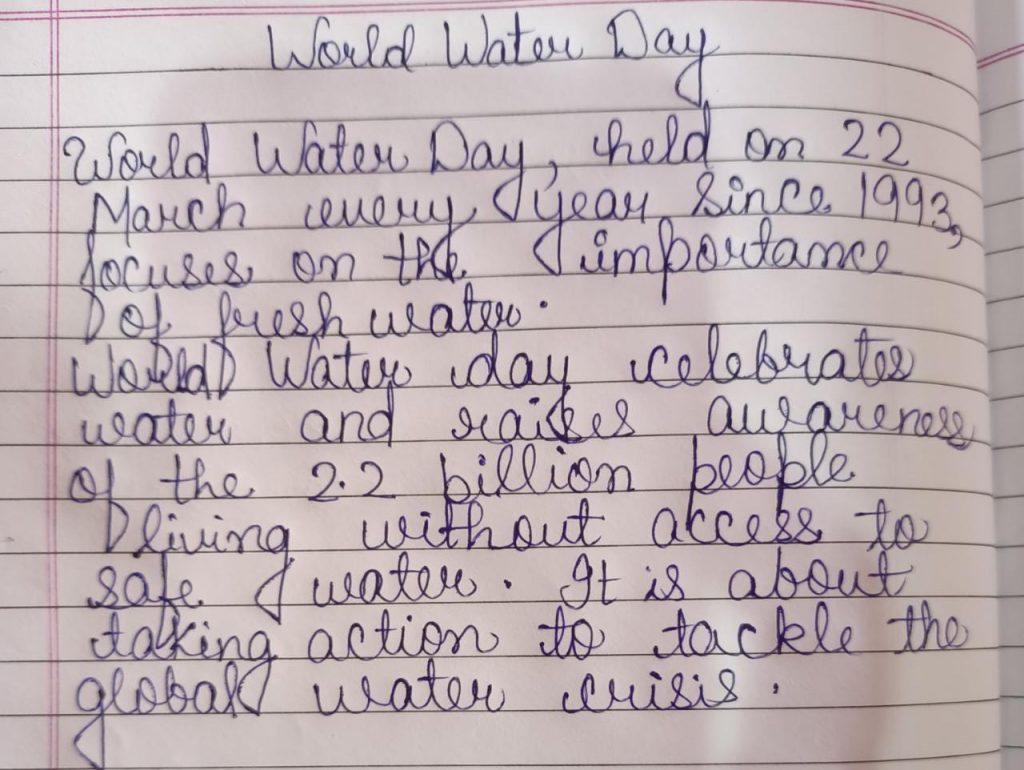 World Water Day
World Water Day, held on 22
March every year since 1993,
focuses on the importance
of fresh water.
World Water day celebrates
water and raises awareness
of the 2.2 billion people
living without access to
safe water. It is about
taking action to tackle the
global water crisis.